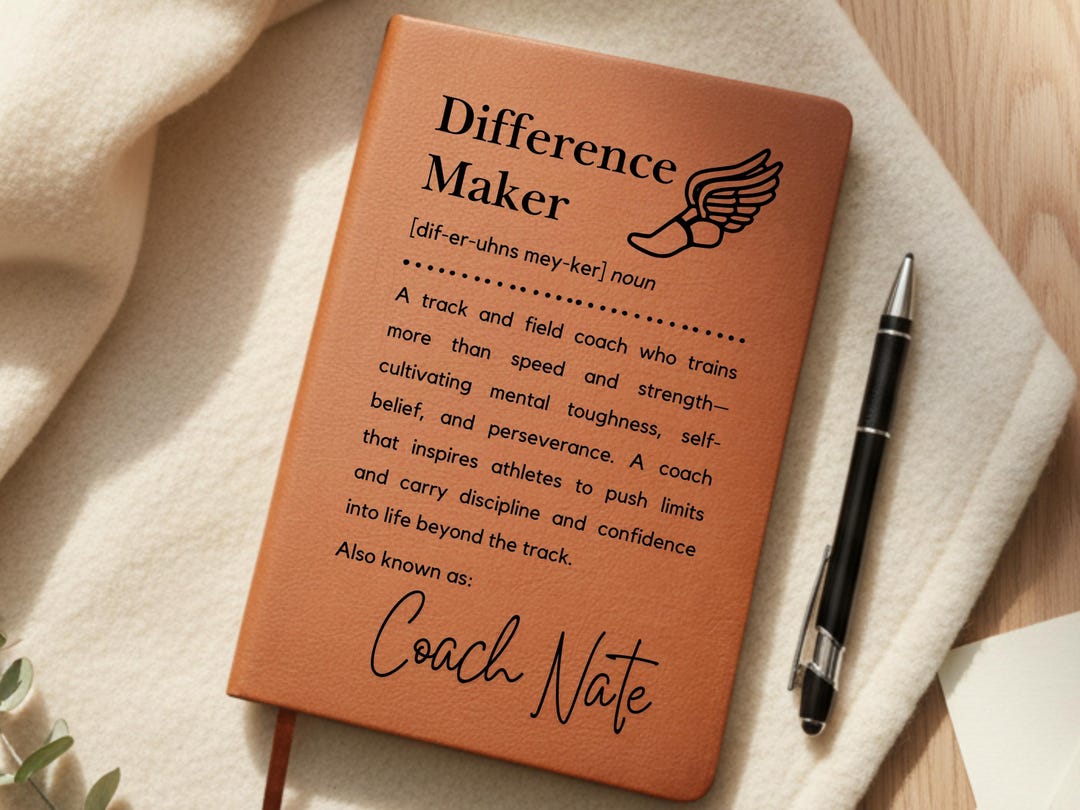 Difference
Maker
[dif-er-uhns mey-ker] noun
A track and field coach who trains
more than speed and strength—
cultivating mental toughness, self-
belief, and perseverance. A coach
that inspires athletes to push limits
and carry discipline and confidence
into life beyond the track.
Also known as:
Coach Nate